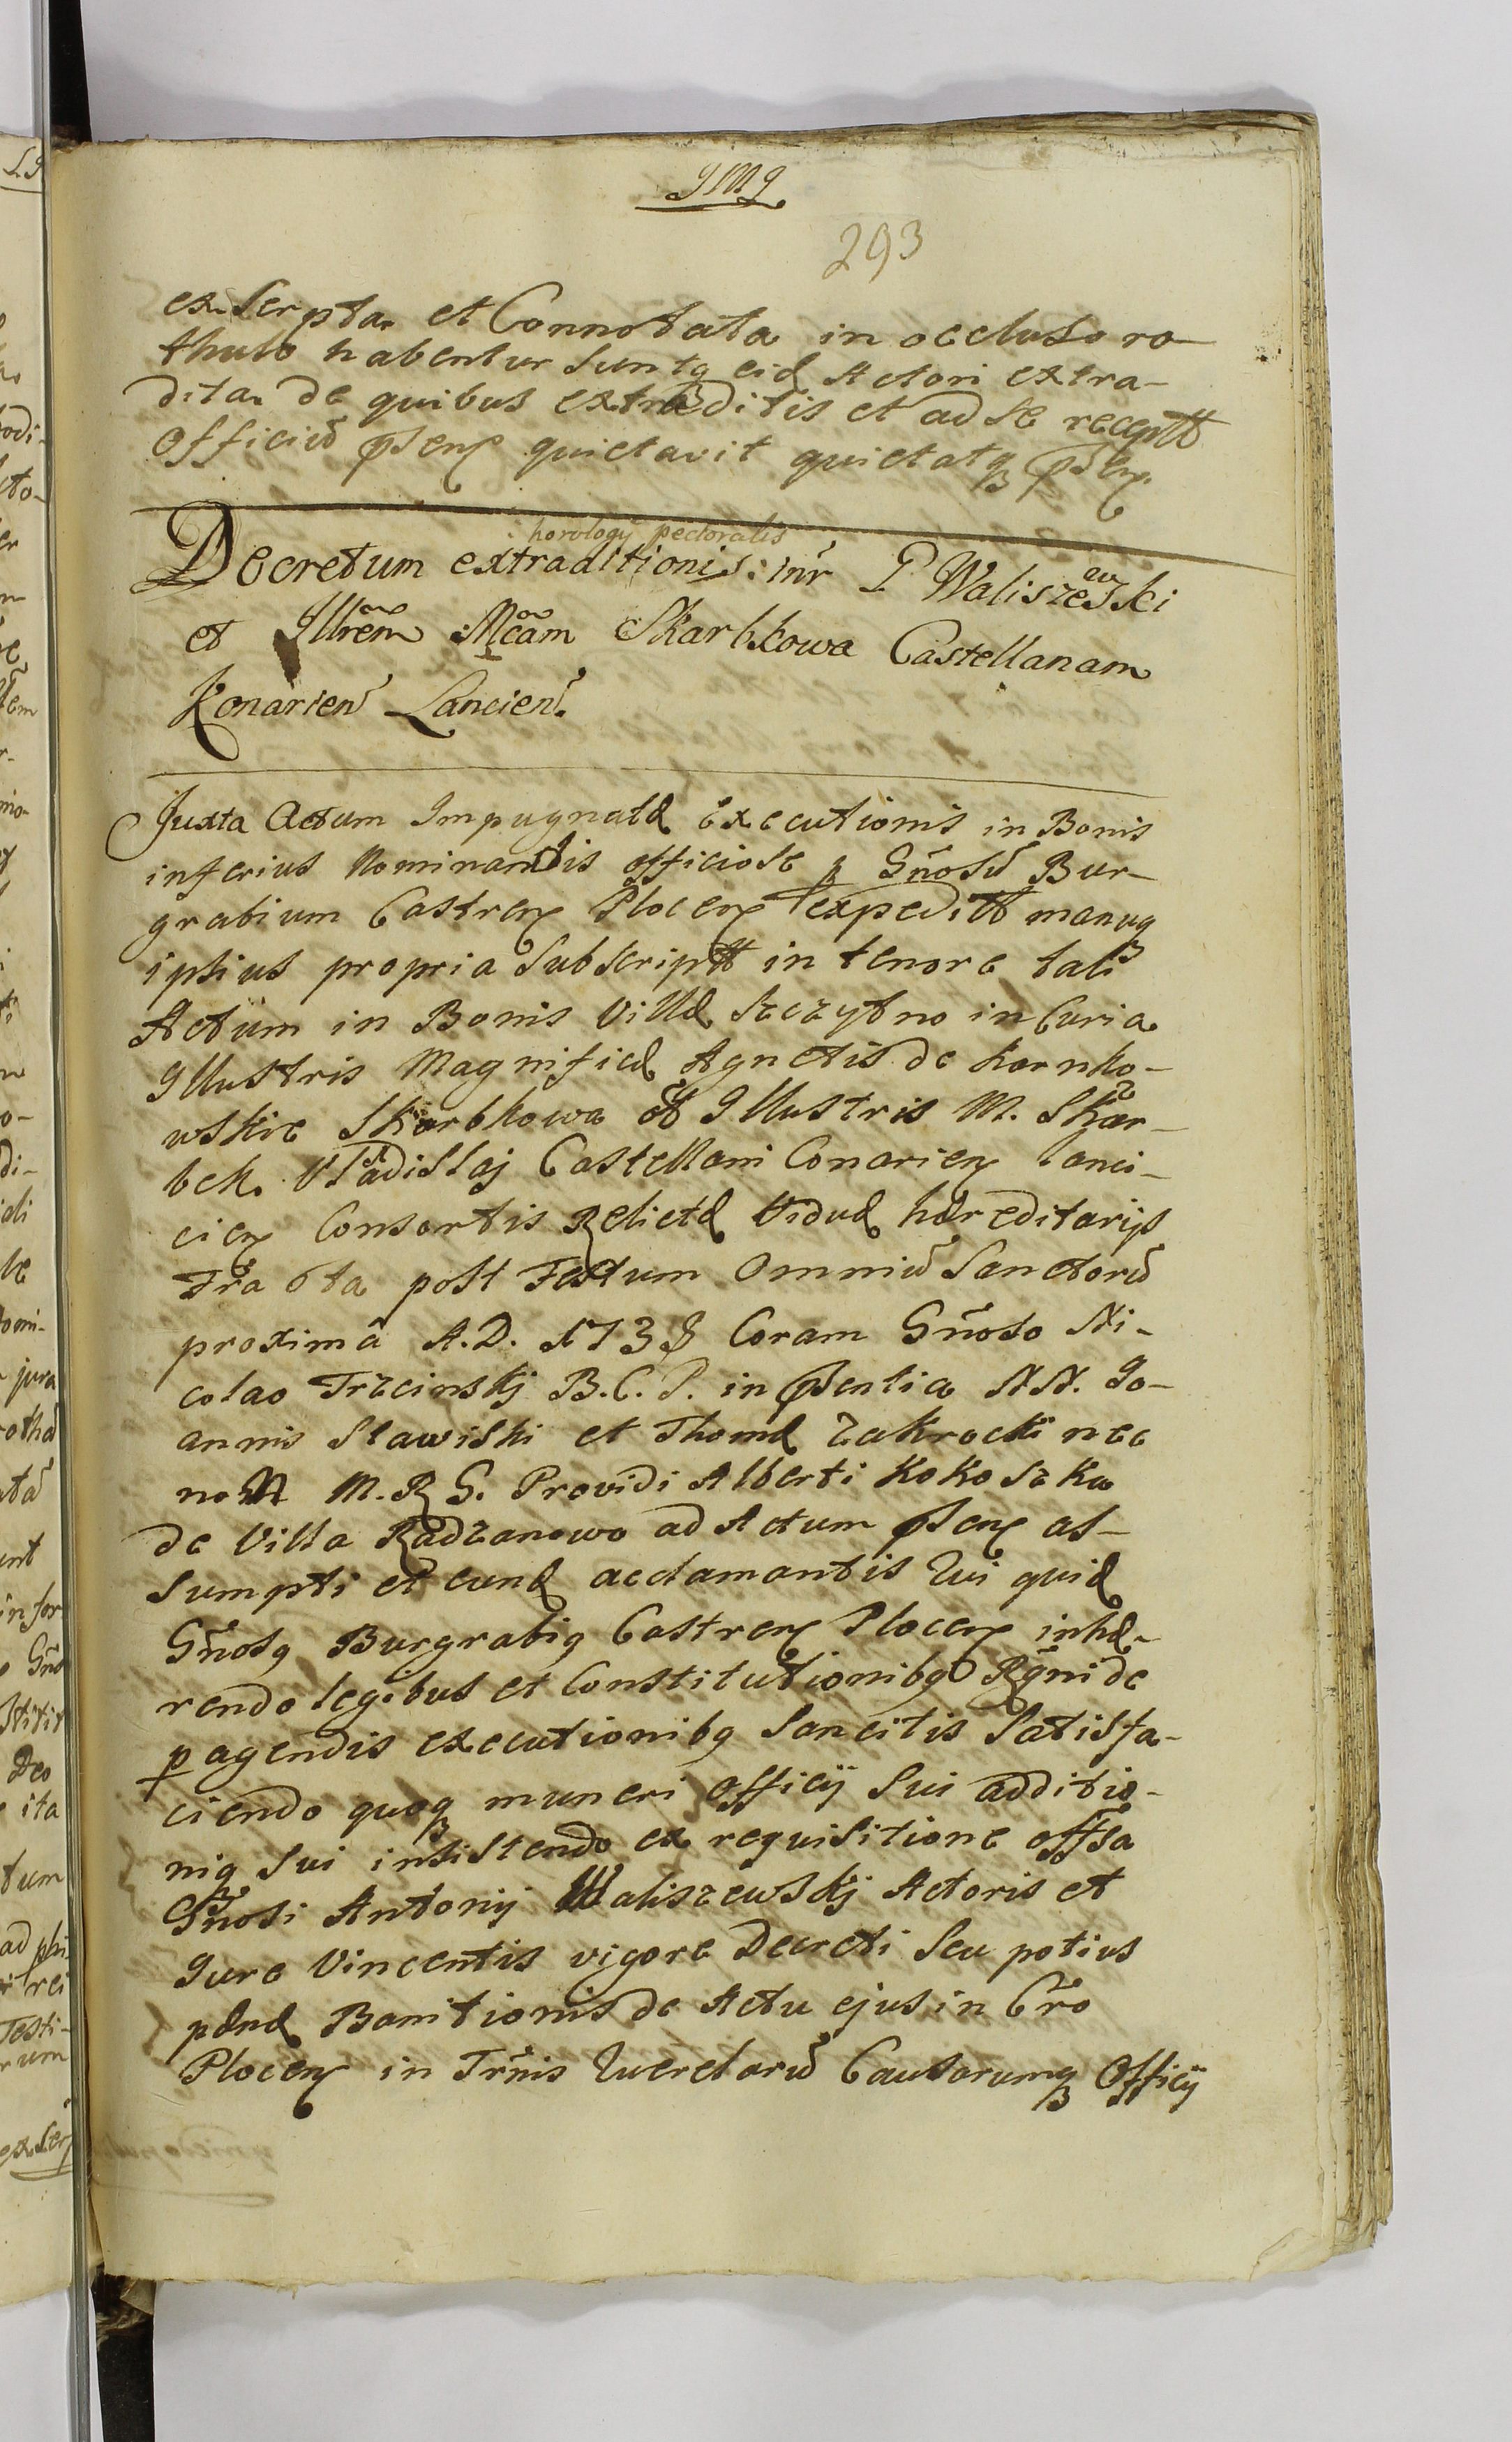 293
exscrpta et Connotata in occluso ro-
thulo habentur suntq eid Actori extra-
dita de quibus extraditis et ad se receptt
Officiū pñsens quietavit quietatqȝ pñsen
horologij pectoralis
Decretum extraditionis: inr̃ G Waliszewski
et Illrẽm Mcãm Skarbkowa Castellanam
Konarien̄ Lancien̄.
Juxta Actum Impugnatæ Executionis in Bonis
inferius Nominandis officiose p Gñosū Bur-
grabium Castren Plocen expeditt manuq
ipsius propria Subscriptt in tenore tali
Actum in Bonis Villæ Szczytno in Curia
Illustris Magnificæ Agnetis de Karnko-
wskie Skarbkowa et Illustris M. Skar-
bek Vladislaj Castellani Conarien Lanci-
cien Consortis Relictæ Viduæ hæreditarijs
Frã 6ta post Festum Omniū Sanctorū
proximâ A.D. 1738 Coram Gñoso Ni-
colao Trzcinskj B.C.P. in pñsentia NN. Jo-
annis Slawiski et Thomæ Zakrocki nec
non M.R G. Providi Alberti Kokoszka
de Villa Radzanowo ad Actum pñsen as-
sumpti et eund acclamantis Qui quid
Gñosq Burgrabiq Castren Plocen inhæ-
rendo legibus et Constitutionibq Rg̃ni de
pagendis executionibq Sancitis Satisfa-
ciendo quoqȝ muneri Officij Sui additio-
niq Sui insistendo ex requisitione offsa
Gñosi Antonij Waliszewskj Actoris et
Jure Vincentis vigore Decreti Seu potius
pænæ Banitionis de Actu ejus in Cr̃o
Plocen in Tr̃nis Querelarū Causarumqȝ Officij